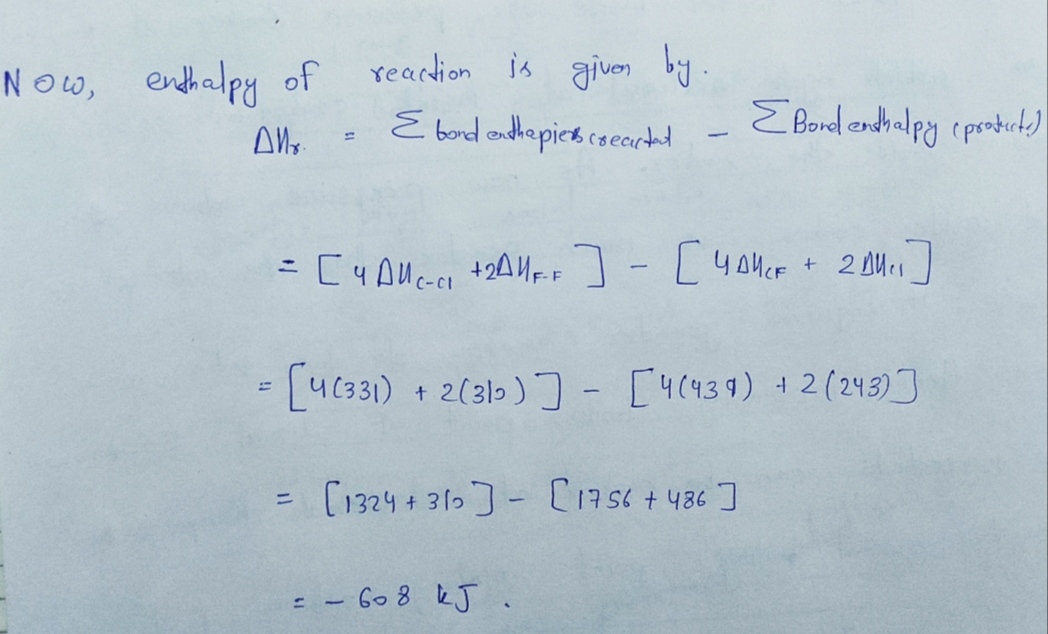 Now, enthalpy of reaction is given by.
ΔHr. = Σ bond enthapies (reactant - Σ Bond enthalpy (products)
= [4 ΔH C-Cl + 2ΔH F-F] - [4 ΔH CF + 2 ΔH Cl]
= [4(331) + 2(310)] - [4(439) + 2(243)]
= [1324 + 310] - [1756 + 486]
= - 608 kJ.